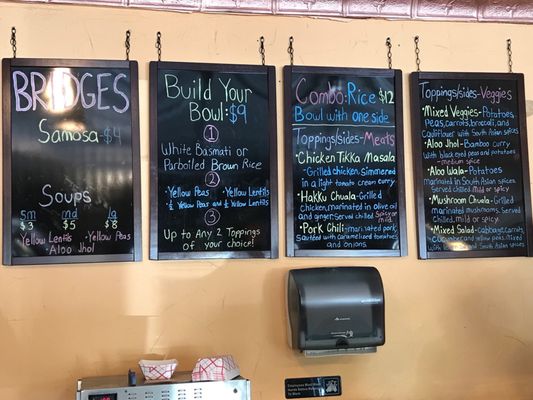 BRIDGES
Samosa - $4
Soups
sm md la
$3 $5 $8
-Yellow Lentils -Yellow Peas
-Aloo Jhol
Build Your
Bowl: $9
1
White Basmati or
Parboiled Brown Rice
2
-Yellow Peas -Yellow Lentils
-½ Yellow Peas and ½ Yellow Lentils
3
Up to Any 2 Toppings
of your choice!
Combo: Rice $12
Bowl with one side
Toppings/sides-Meats
•Chicken Tikka Masala
-Grilled chicken, simmered
in a light tomato cream curry
•Hakku Chuala-Grilled
chicken, marinated in olive oil
and ginger. Served chilled Spicy or
mild
•Pork Chili-marinated pork,
Sautéed with caramelized tomatoes
and onions
Toppings/sides-Veggies
•Mixed Veggies-Potatoes,
Peas, carrots, broccoli, and
Cauliflower with South Asian spices
•Aloo Jhol-Bamboo curry
with black eyed peas and potatoes
-medium spice
•Aloo Wala-Potatoes
marinated in South Asian
spices. Served chilled mild or spicy
•Mushroom Chuala-Grilled
marinated mushrooms. Served
chilled, mild or spicy
•Mixed Salad-cabbage, carrots,
cucumber and yellow peas, mixed
with South Asian spices
Employees Must Wash
Hands Before